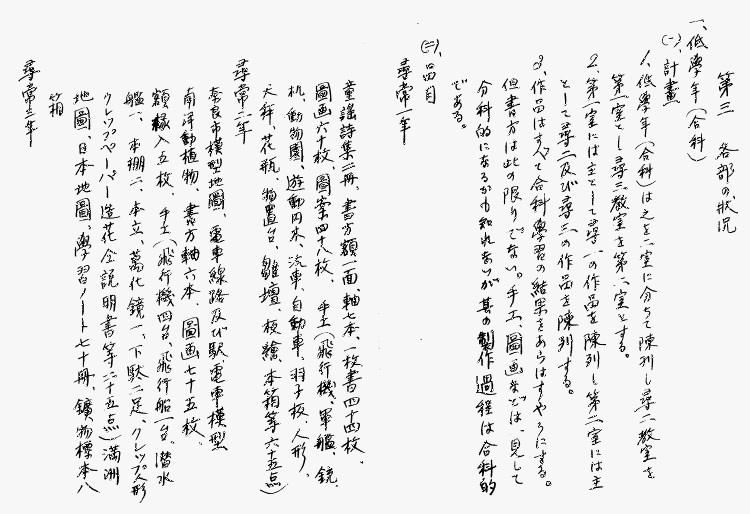 第三　各部の状況
一、低學年(合科)
(一)、計畫
1、低學年(合科)は之を二室に分ちて陳列し尋二教室を
第一室とし尋三教室を第二室とする。
2、第一室には主として尋一の作品を陳列し第二室には主
として尋二及び尋三の作品を陳列する。
3、作品はすべて合科學習の結果をあらはすやうにする。
但書方は此の限りでない。手工、圖画などでは、見して
分科的にあるかも知れないが其の製作過程は合科的
である。
(二)、品目
尋常一年
童謡詩集二冊、書方額一面、軸七本、一枚書四十四枚、
圖画六十枚、圖案四十八枚、手工(飛行機、軍艦、鏡、
机、動物園、遊動円木、汽車、自動車、羽子板、人形、
天秤、花瓶、物置台、雛壇、板繪、本箱等六十五点)
尋常二年
奈良市模型地圖、電車線路及び駅、電車模型
南洋動植物、書方軸六本、圖画七十五枚、
額縁入五枚、手工(飛行機四台、飛行船一台、潜水
艦一、本棚二、本立、萬化鏡一、下駄二足、クレップ人形
クレップペーパー造花全説明書等二十五点)満洲
地圖、日本地圖、學習ノート七十冊、鑛物標本八
箱
尋常三年